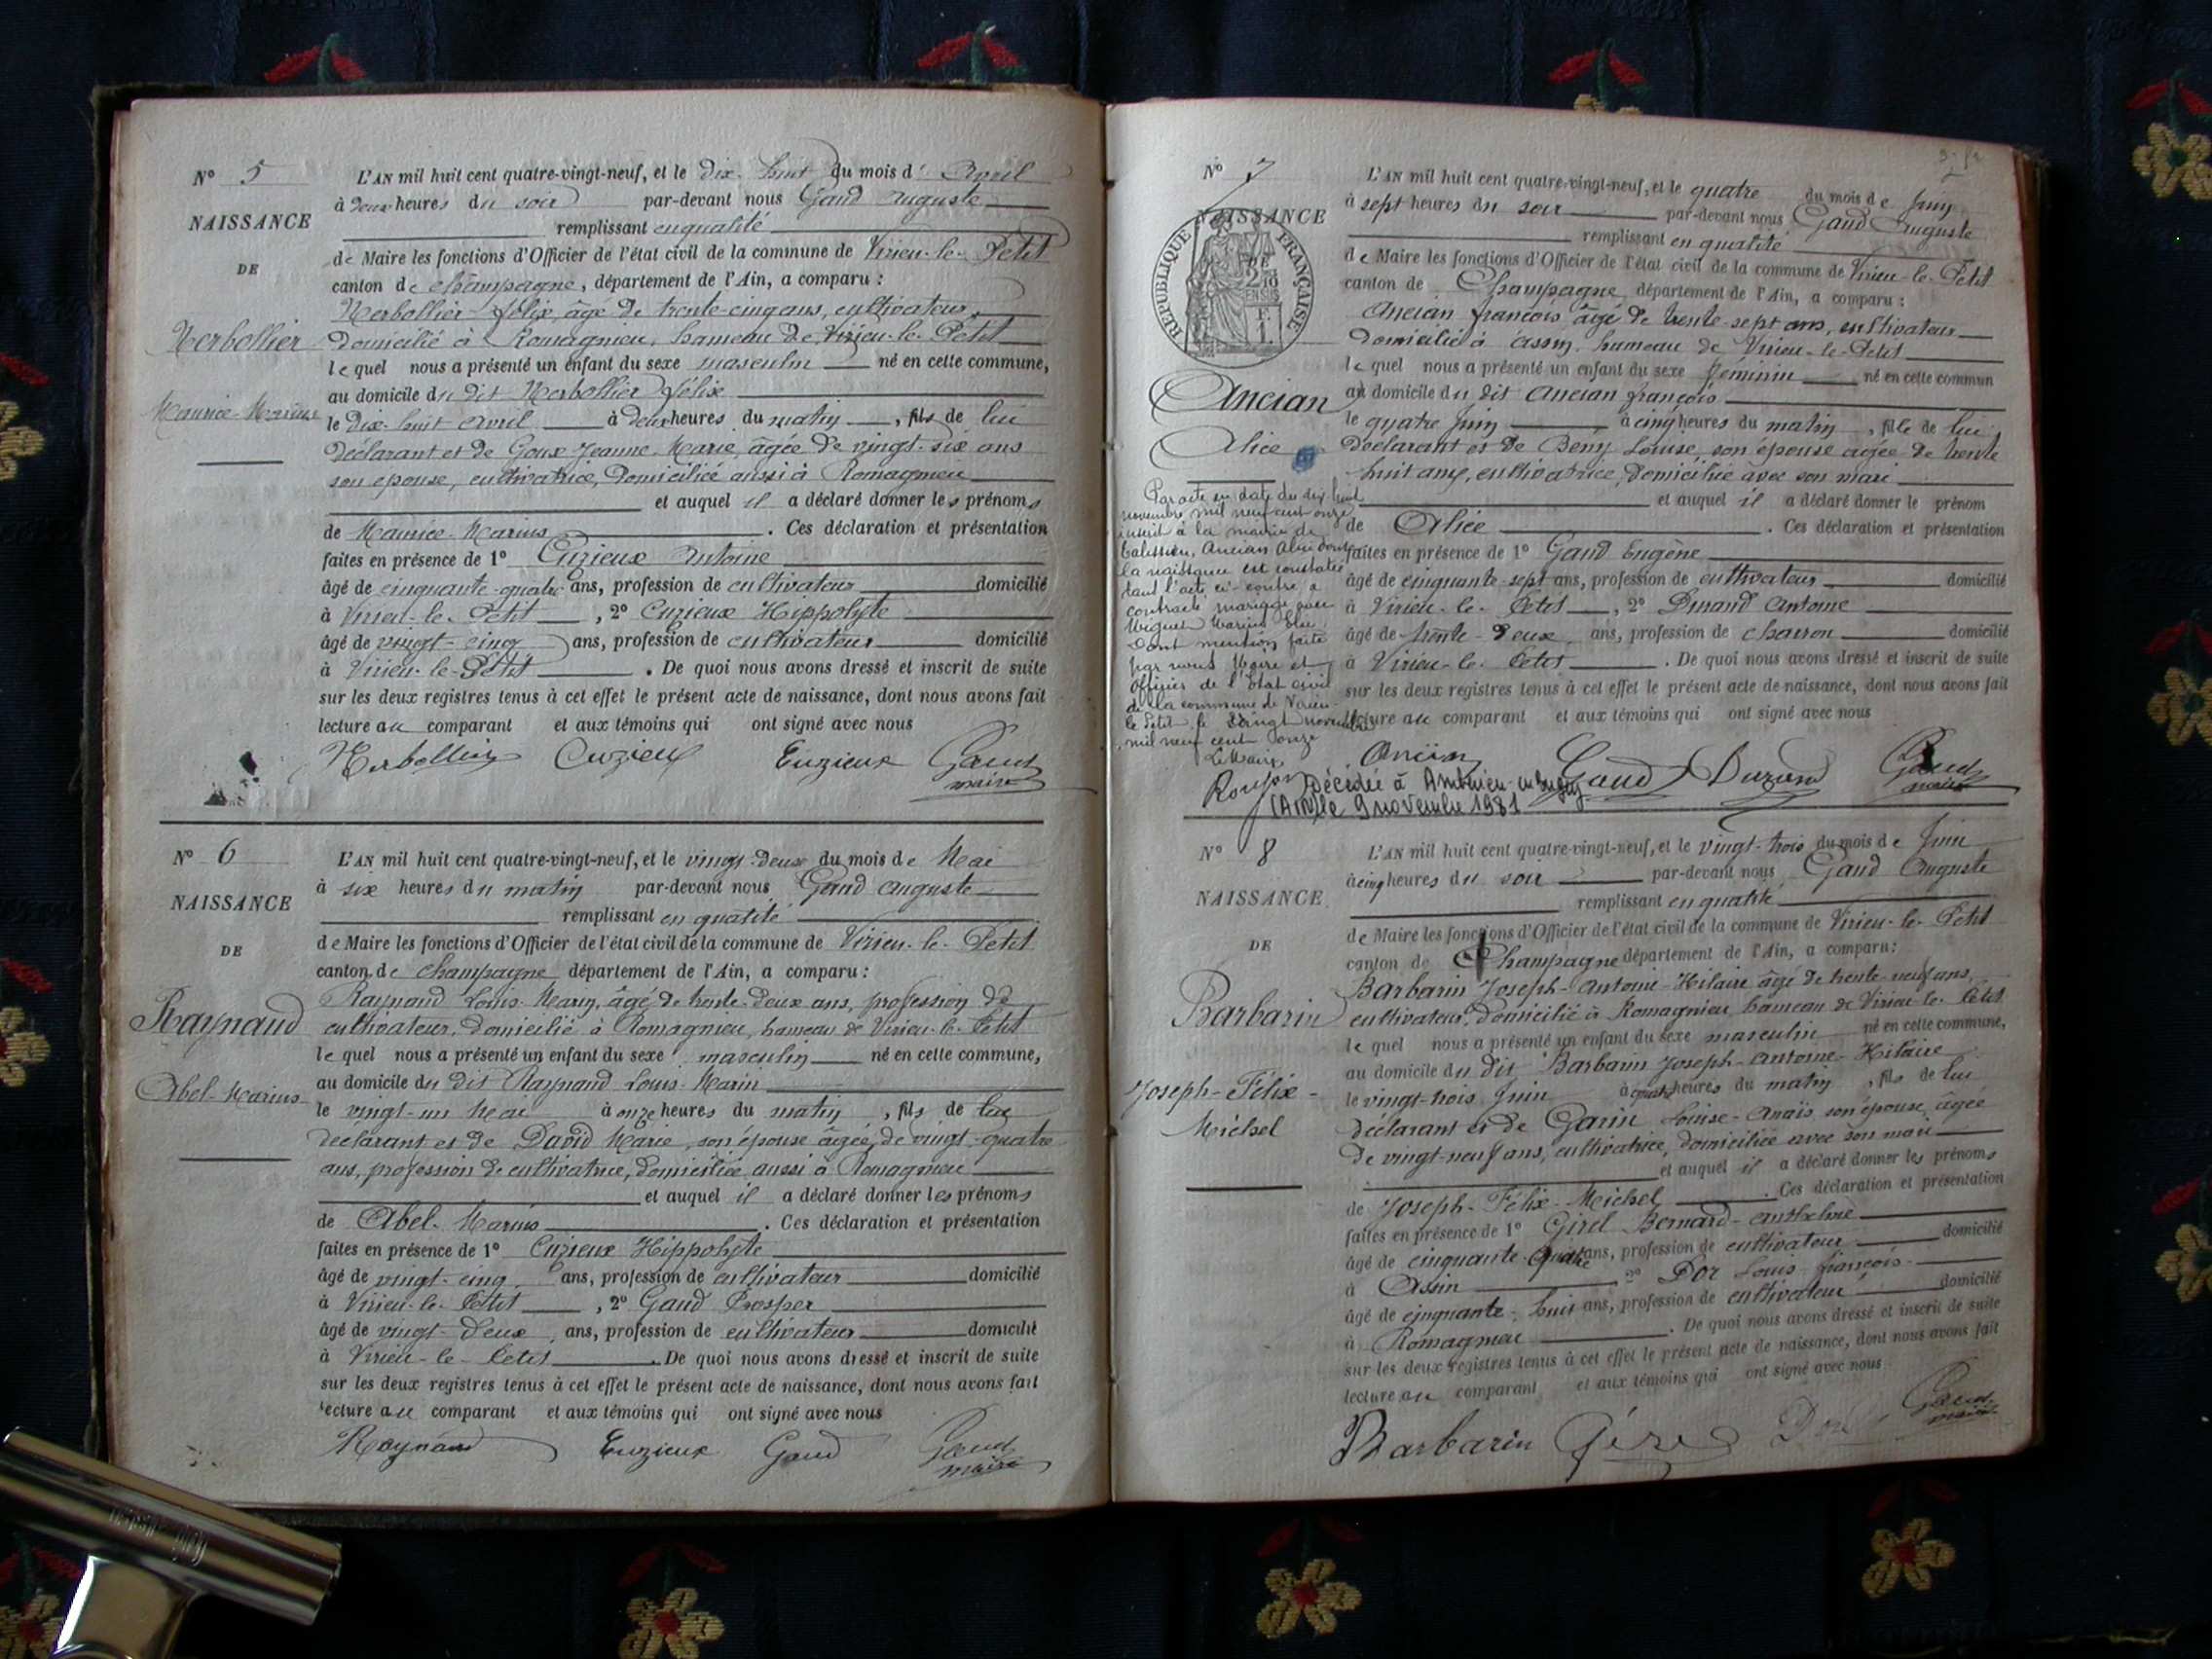 N° 5
NAISSANCE
DE
Nerbollier
Maurice-Marius
L'AN mil huit cent quatre-vingt-neuf, et le dix-huit du mois d'Avril
à deux heures du soir par-devant nous Gaud Auguste
remplissant en qualité
de Maire les fonctions d'Officier de l'état civil de la commune de Virieu-le-Petit
canton de Champagne, département de l'Ain, a comparu :
Nerbollier félix, âgé de trente-cinq ans, cultivateur,
domicilié à Romagnieu, hameau de Virieu-le-Petit
lequel nous a présenté un enfant du sexe masculin né en cette commune,
au domicile du dit Nerbollier félix
le dix-huit avril à deux heures du matin, fils de lui
déclarant et de Goux Jeanne-Marie, âgée de vingt-six ans
son épouse, cultivatrice, domiciliée aussi à Romagnieu
et auquel il a déclaré donner les prénoms
de Maurice-Marius. Ces déclaration et présentation
faites en présence de 1° Cuzieux Antoine
âgé de cinquante-quatre ans, profession de cultivateur domicilié
à Virieu-le-Petit, 2° Cuzieux Hippolyte
âgé de vingt-cinq ans, profession de cultivateur domicilié
à Virieu-le-Petit. De quoi nous avons dressé et inscrit de suite
sur les deux registres tenus à cet effet le présent acte de naissance, dont nous avons fait
lecture au comparant et aux témoins qui ont signé avec nous
Nerbollier Cuzieux Cuzieux Gaud
maire
N° 6
NAISSANCE
DE
Raynaud
Abel-Marius
L'AN mil huit cent quatre-vingt-neuf, et le vingt-deux du mois de Mai
à six heures du matin par-devant nous Gaud Auguste
remplissant en qualité
de Maire les fonctions d'Officier de l'état civil de la commune de Virieu-le-Petit
canton de Champagne département de l'Ain, a comparu :
Raynaud Louis-Marin, âgé de trente-deux ans, profession de
cultivateur, domicilié à Romagnieu, hameau de Virieu-le-Petit
lequel nous a présenté un enfant du sexe masculin né en cette commune,
au domicile du dit Raynaud Louis-Marin
le vingt-un Mai à onze heures du matin, fils de lui
déclarant et de David Marie, son épouse âgée de vingt-quatre
ans, profession de cultivatrice, domiciliée aussi à Romagnieu
et auquel il a déclaré donner les prénoms
de Abel-Marius. Ces déclaration et présentation
faites en présence de 1° Cuzieux Hippolyte
âgé de vingt-cinq ans, profession de cultivateur domicilié
à Virieu-le-Petit, 2° Gaud Prosper
âgé de vingt-deux ans, profession de cultivateur domicilié
à Virieu-le-Petit. De quoi nous avons dressé et inscrit de suite
sur les deux registres tenus à cet effet le présent acte de naissance, dont nous avons fait
lecture au comparant et aux témoins qui ont signé avec nous
Raynaud Cuzieux Gaud Gaud
maire
N° 7
NAISSANCE
RÉPUBLIQUE FRANÇAISE
Ancian
Alice
L'AN mil huit cent quatre-vingt-neuf, et le quatre du mois de Juin
à sept heures du soir par-devant nous Gaud Auguste
remplissant en qualité
de Maire les fonctions d'Officier de l'état civil de la commune de Virieu-le-Petit
canton de Champagne département de l'Ain, a comparu :
Ancian françois âgé de trente-sept ans, cultivateur
domicilié à Assin hameau de Virieu-le-Petit
lequel nous a présenté un enfant du sexe féminin né en cette commun
au domicile du dit Ancian françois
le quatre Juin à cinq heures du matin, fille de lui
déclarant et de Beny Louise, son épouse âgée de trente
huit ans, cultivatrice, domiciliée avec son mari
et auquel il a déclaré donner le prénom
de Alice. Ces déclaration et présentation
faites en présence de 1° Gaud Eugène
âgé de cinquante-sept ans, profession de cultivateur domicilié
à Virieu-le-Petit, 2° Durand Antoine
âgé de trente-deux ans, profession de charron domicilié
à Virieu-le-Petit. De quoi nous avons dressé et inscrit de suite
sur les deux registres tenus à cet effet le présent acte de naissance, dont nous avons fait
lecture au comparant et aux témoins qui ont signé avec nous
Ancian Gaud Durand Gaud
maire
Par acte en date du dix huit
novembre mil neuf cent onze
inscrit à la mairie de
Talissieu, Ancian Alice dont
la naissance est constatée
dans l'acte ci-contre a
contracté mariage avec
Miguet Marius
Dont mention faite
par nous Maire et
Officier de l'Etat civil
de la commune de Virieu
le Petit le vingt novembre
mil neuf cent onze
Le Maire
Décédée à Ambérieu-en-Bugey
(Ain) le 9 novembre 1981
N° 8
NAISSANCE
DE
Barbarin
Joseph-Félix-
Michel
L'AN mil huit cent quatre-vingt-neuf, et le vingt-trois du mois de Juin
à cinq heures du soir par-devant nous Gaud Auguste
remplissant en qualité
de Maire les fonctions d'Officier de l'état civil de la commune de Virieu-le-Petit
canton de Champagne département de l'Ain, a comparu :
Barbarin Joseph-Antoine-Hilaire âgé de trente-neuf ans,
cultivateur, domicilié à Romagnieu hameau de Virieu-le-Petit
lequel nous a présenté un enfant du sexe masculin né en cette commune,
au domicile du dit Barbarin Joseph-Antoine-Hilaire
le vingt-trois Juin à quatre heures du matin, fils de lui
déclarant et de Garin Louise-Anaïs son épouse, âgée
de vingt-neuf ans, cultivatrice, domiciliée avec son mari
et auquel il a déclaré donner les prénoms
de Joseph-Félix-Michel. Ces déclaration et présentation
faites en présence de 1° Girel Bernard-Anthelme
âgé de cinquante-quatre ans, profession de cultivateur domicilié
à Assin 2° Dor Louis-françois
âgé de cinquante-huit ans, profession de cultivateur domicilié
à Romagnieu. De quoi nous avons dressé et inscrit de suite
sur les deux registres tenus à cet effet le présent acte de naissance, dont nous avons fait
lecture au comparant et aux témoins qui ont signé avec nous
Barbarin Girel Dor Gaud
maire